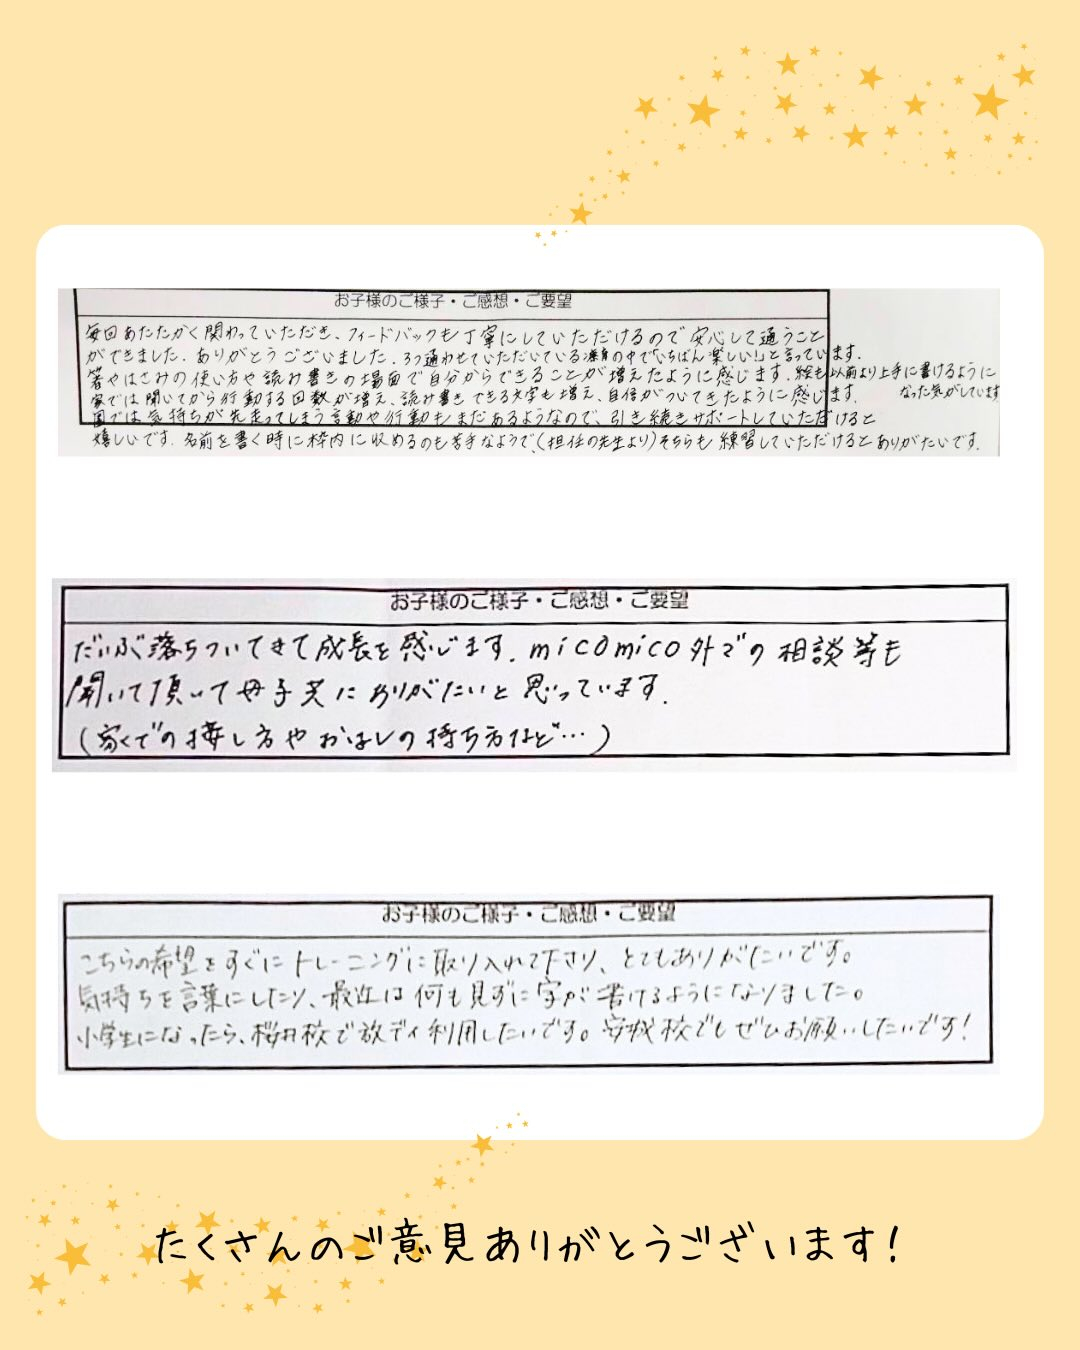 お子様のご様子・ご感想・ご要望
毎回あたたかく関わっていただき、フィードバックも丁寧にしていただけるので安心して通うこと
ができました。ありがとうございました。3つ通わせていただいている療育の中で「いちばん楽しい!」と言っています。
箸やはさみの使い方や読み書きの場面で自分からできることが増えたように感じます。絵も以前より上手に書けるように
なった気がしています
家では聞いてから行動する回数が増え、読み書きできる文字も増え、自信がついてきたように感じます。
園では気持ちが先走ってしまう言動や行動もまだあるようなので、引き続きサポートしていただけると
嬉しいです。名前を書く時に枠内に収めるのも苦手なようで、(担任の先生より)そちらも練習していただけるとありがたいです。
お子様のご様子・ご感想・ご要望
だいぶ落ちついてきて成長を感じます。micomico外での相談等も
聞いて頂いて母子共にありがたいと思っています。
(家での接し方やおはしの持ち方など…)
お子様のご様子・ご感想・ご要望
こちらの希望をすぐにトレーニングに取り入れて下さり、とてもありがたいです。
気持ちを言葉にしたり、最近は何も見ずに字が書けるようになりました。
小学生になったら、桜井校で放デイ利用したいです。安城校でもぜひお願いしたいです!
たくさんのご意見ありがとうございます!